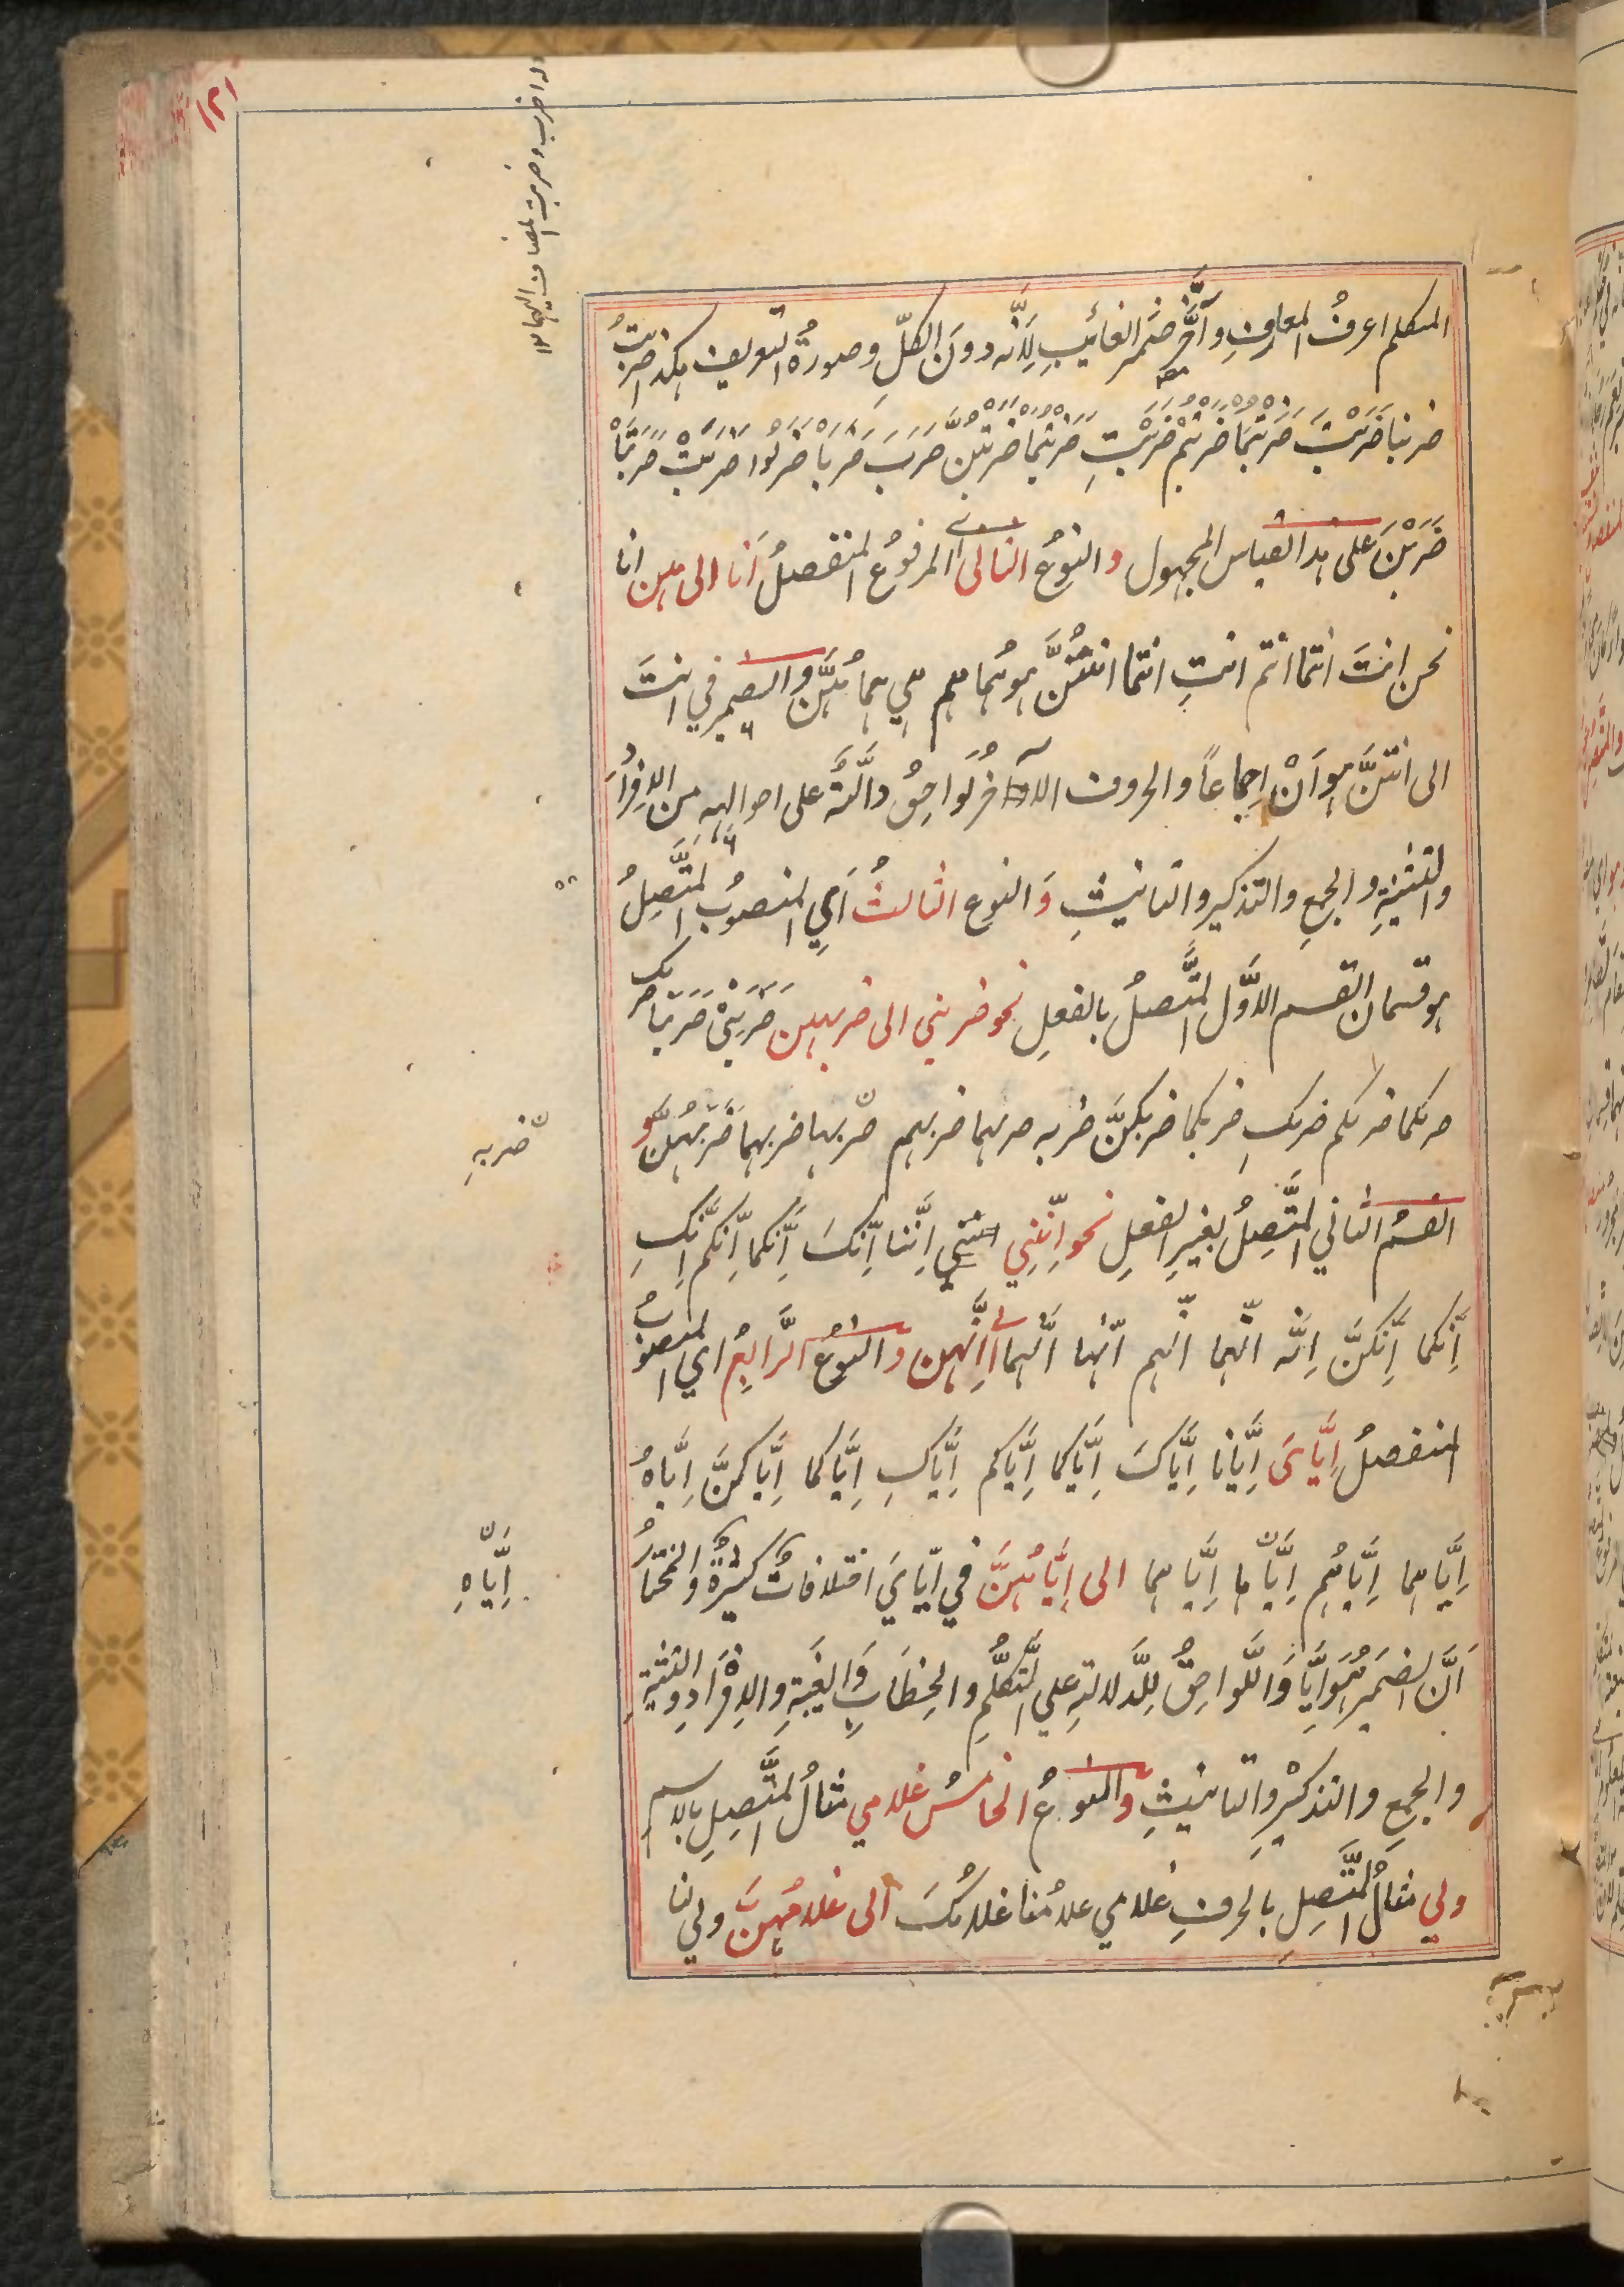 ١٢١
المتكلم اعرفُ المعارفِ واَخَّر ضمير الغائبِ لِاَنَّه دونَ الكلِّ وصورةُ التعريف هكذا ضربتُ
ضربنا ضَرَبْتَ ضَرَبْتُمَا ضَرَبْتُمْ ضَرَبْتِ ضَرَبْتُمَا ضَرَبْتُنَّ ضَرَبَ ضَرَبَا ضَرَبُوا ضَرَبَتْ ضَرَبَتَا
ضَرَبْنَ على هذا القياس المجهول والنوعُ الثاني اي المرفوع المنفصلُ اَنَا الى هن انا
نحن انتَ انتما انتم انتِ انتما انتُنَّ هو هُما هم هي هما هُنَّ والضمير في انتَ
الى انتنَّ هو اَنْ اِجماعاً والحروف الاواخرُ لَواحِقُ دالَّةٌ على احوالِهِ من الاِفرادِ
والتثنيةِ والجمعِ والتذكير والتانيثِ وَالنوع الثالثُ اَيِ المنصوبُ المتَّصِلُ
هو قسمان القسم الاوَّل المتَّصلُ بالفعلِ نحو ضربني الى ضربهن ضَرَبَنِيْ ضَرَبَنَا ضربك
ضربكما ضربكم ضربكِ ضربكما ضربكنَّ ضربه ضربهما ضربهم ضربها ضربهما ضَرَبَهُنَّ و
القسمُ الثاني المتَّصِلُ بغيرِ الفعلِ نحو اِنَّنِي اِنَّنا اِنَّكَ اِنَّكما اِنَّكم اِنَّكِ
اِنَّكما اِنَّكنَّ اِنَّه انّهما انّهم انّها انّهما الى اِنَّهن والنوعُ الرَّابِعُ اي المنصوبُ
المنفصلُ اِيَّايَ اِيَّانا اِيَّاكَ اِيَّاكما اِيَّاكم اِيَّاكِ اِيَّاكما اِيَّاكنَّ اِيَّاهُ
اِيَّاهما اِيَّاهُم اِيَّاها اِيَّاهما الى اِيَّاهُنَّ في اِيَّايَ اختلافاتٌ كثيرةٌ والمختارُ
اَنَّ الضميرَ هُوَ اِيَّا وَاللَّواحِقُ لِلدَّلالةِ علي المتكلّمِ والخِطَابِ وَالغَيبةِ والاِفْرَادِ والتثنيةِ
والجمعِ والتذكيْرِ والتانيثِ والنوعُ الخامسُ غلامي مثالُ المتَّصِلِ بالاسم
ولي مثالُ المتَّصِلِ بالحرفِ غلامي غلامُنا غلامُكَ الى غلامُهنَّ ولي لنا
ضربهِ
اِيَّاهِ